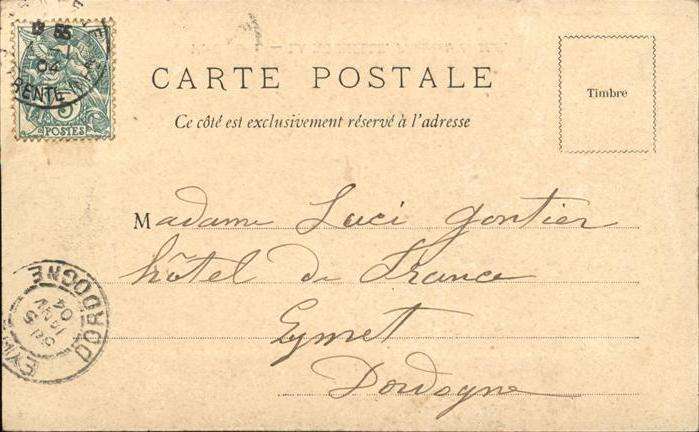 CARTE POSTALE
Ce côté est exclusivement réservé à l'adresse
Timbre
04
RENTE
5
POSTES
Madame Luci Gontier
hôtel de France
Eymet
Dordogne
DORDOGNE
5
04